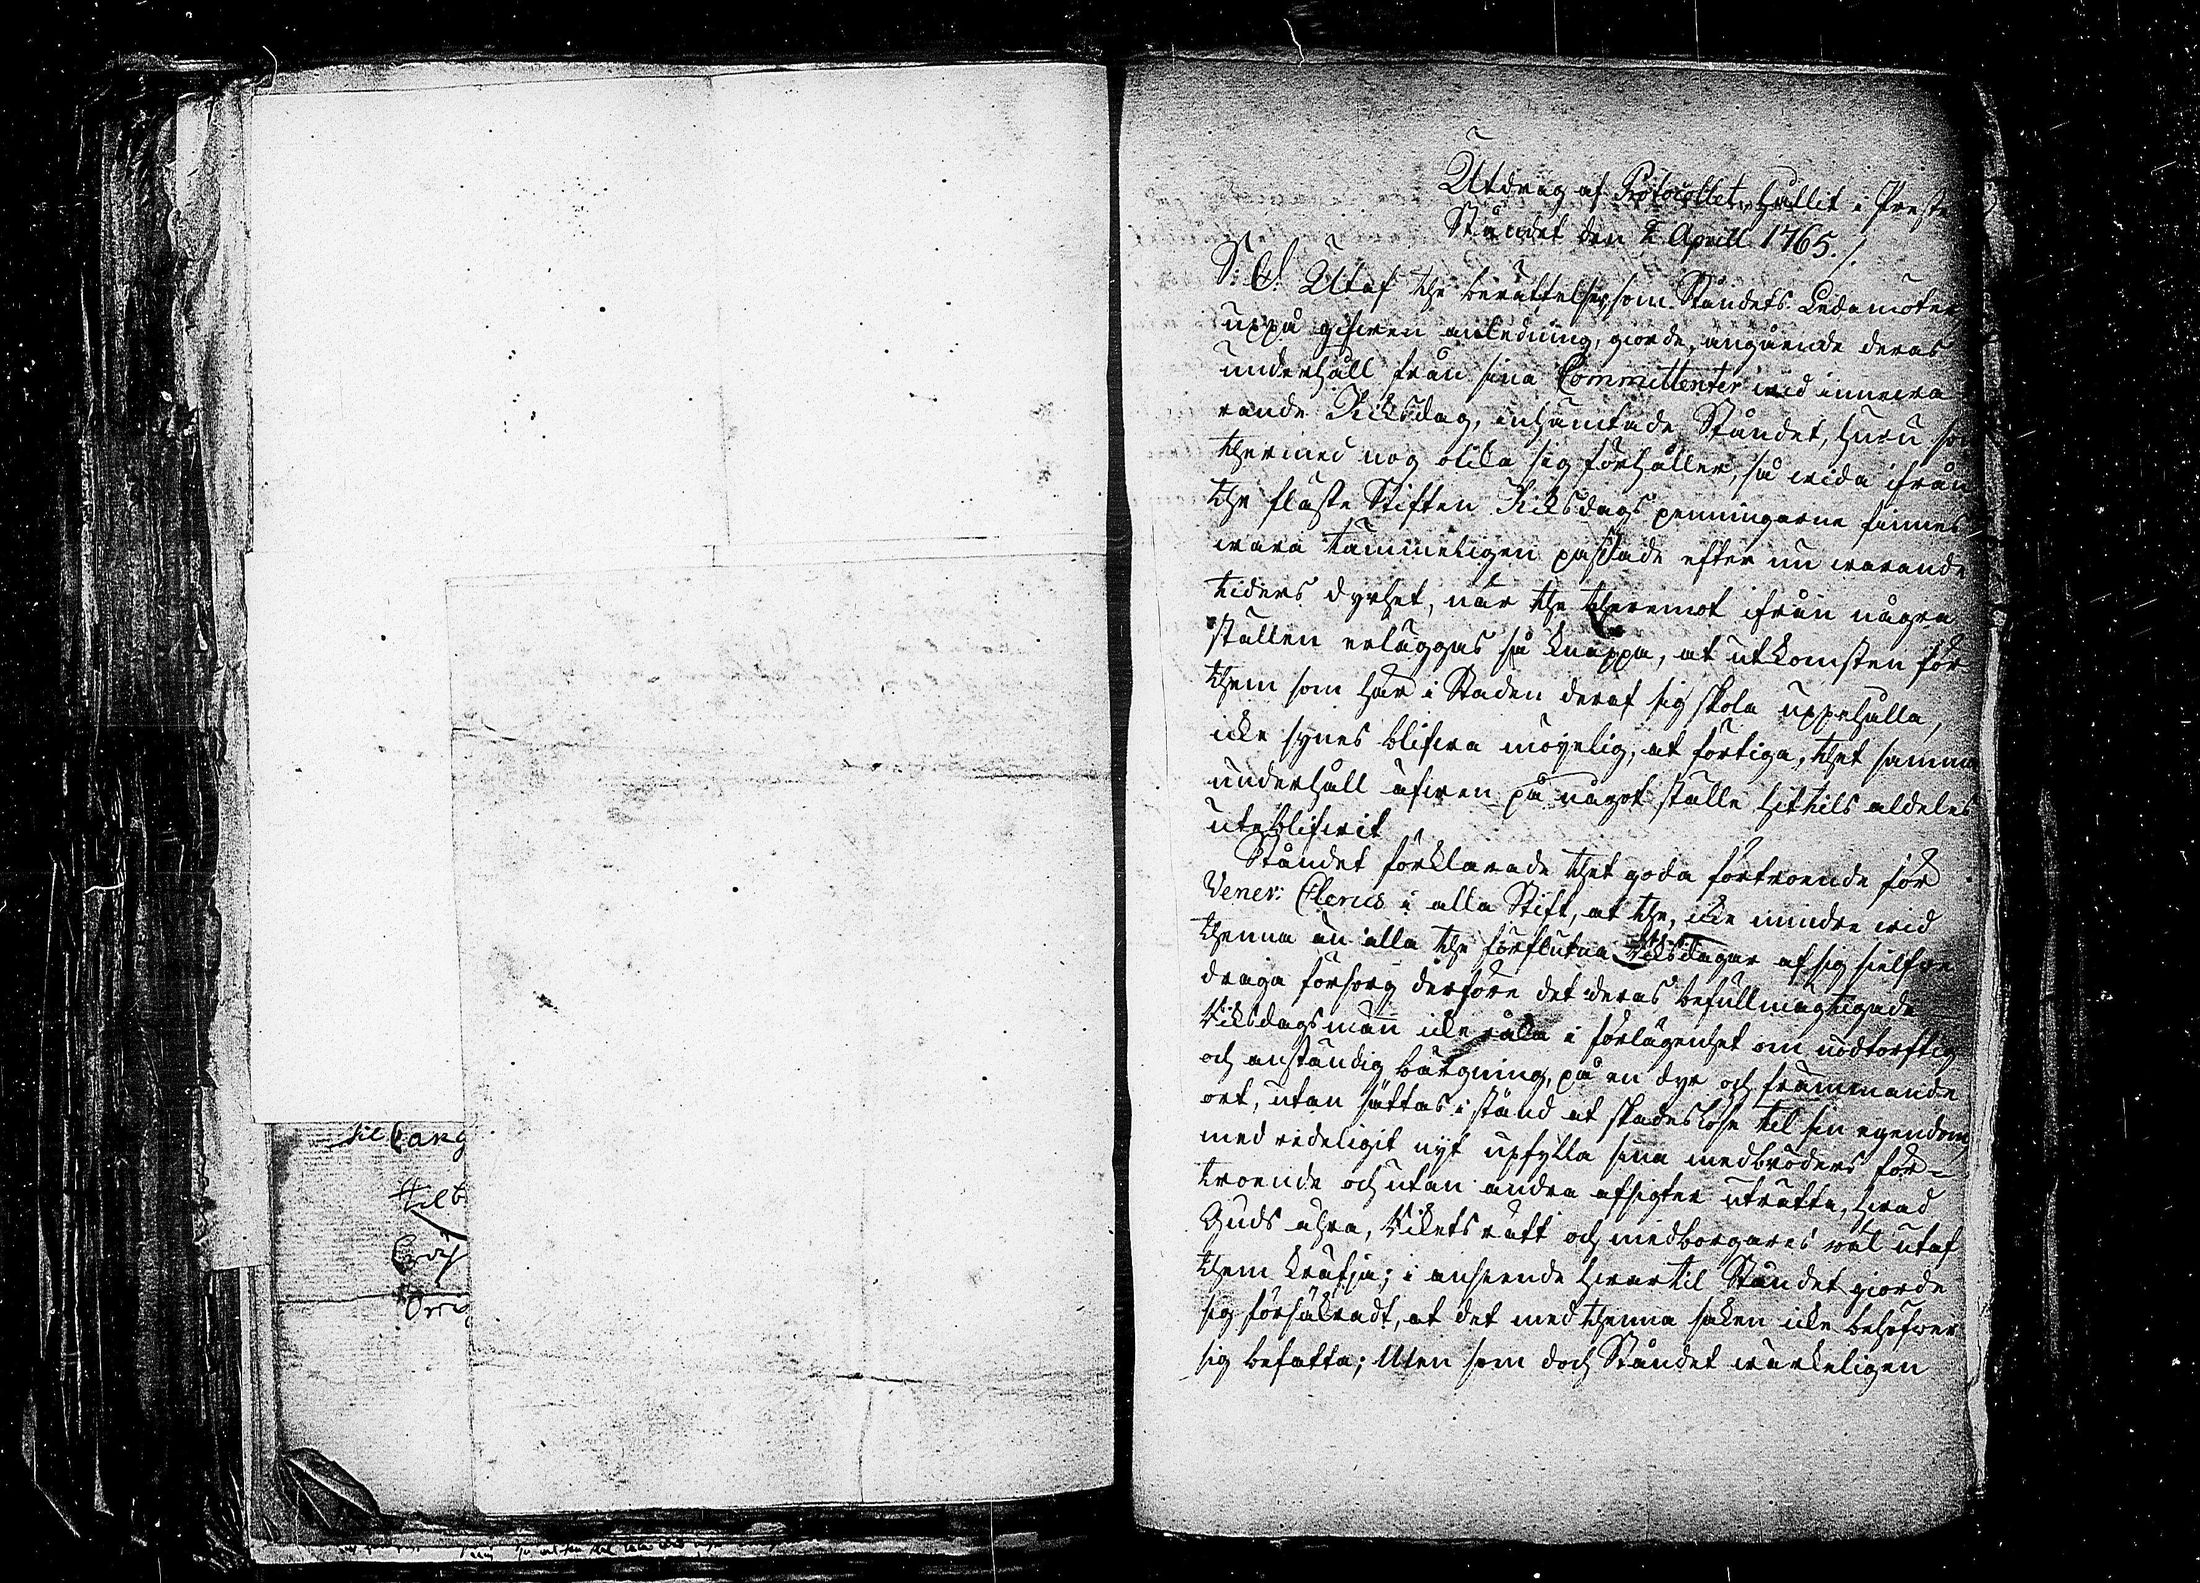 til Cang
til b
Utdrag af Protocollet, hållit i Preste
Ståndet den 2 Aprill 1765.
S: C: Utaf the berättelser, som Ståndets Ledamöter
uppå gifwen anledning, giorde, angående deras
underhåll från sina Committenter wid innewa
rande Riksdag, inhämtade Ståndet, huru som
thermed nog olika sig förhåller, så wida ifrån
the flästa Stiften Riksdags penningarne finnes
wara tämmeligen passade efter nu warande
tiders dyrhet, när the theremot ifrån några
ställen erläggas så knappa, at utkomsten för
them som här i Staden deraf sig skola uppehålla,
icke synes blifwa möyelig, at förtiga, thet samma
underhåll äfwen på något ställe hittils aldeles
uteblifwit
Ståndet förklarade thet goda förtroende för
Vener: Clerus i alla Stift, at the, icke mindre wid
thenna än alla the förflutna Riksdagar af sig sielfwe
draga försorg derföre det deras befullmägtigade
Riksdagsmän icke råka i förlägenhet om nödtorftig
och anständig bärgning, på en dyr och främmande
ort, utan sättas i stånd at skadeslöse til sin egendom,
med redeligit nyt upfylla sina medbröders för-
troende och utan andra afsigter uträtta, hwad
Guds ähra, Rikets rätt och medborgares wäl utaf
them kräfja; i anseende hwartil Ståndet giorde
sig försäkradt, at det med thenna saken icke behöfwer
sig befatta; Uten som doch Ståndet wärkeligen